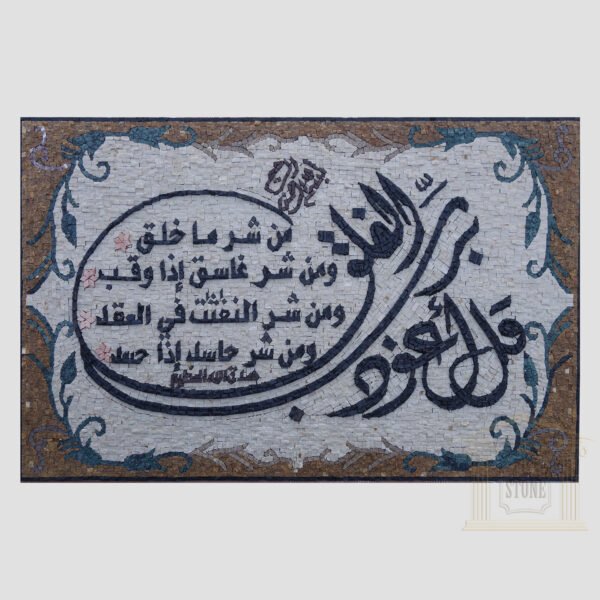 قل أعوذ برب الفلق
من شر ما خلق
ومن شر غاسق إذا وقب
ومن شر النفثت في العقد
ومن شر حاسد إذا حسد
صدق الله العظيم
STONE